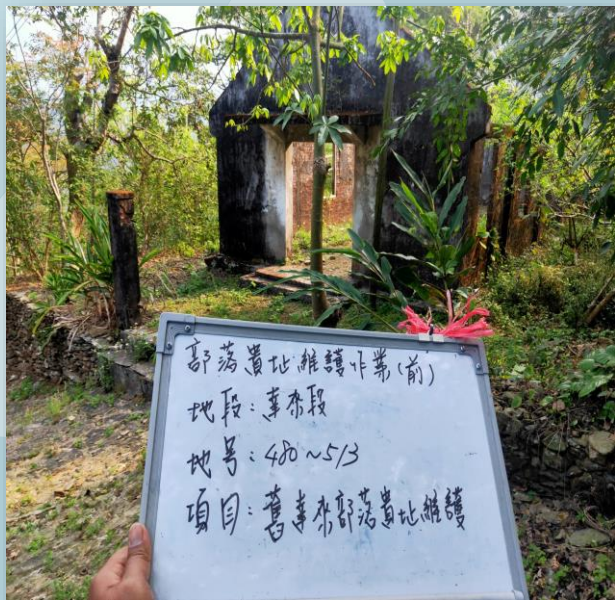 部落遺址維護作業(前)
地段:達來段
地号:480~513
項目:舊達來部落遺址維護